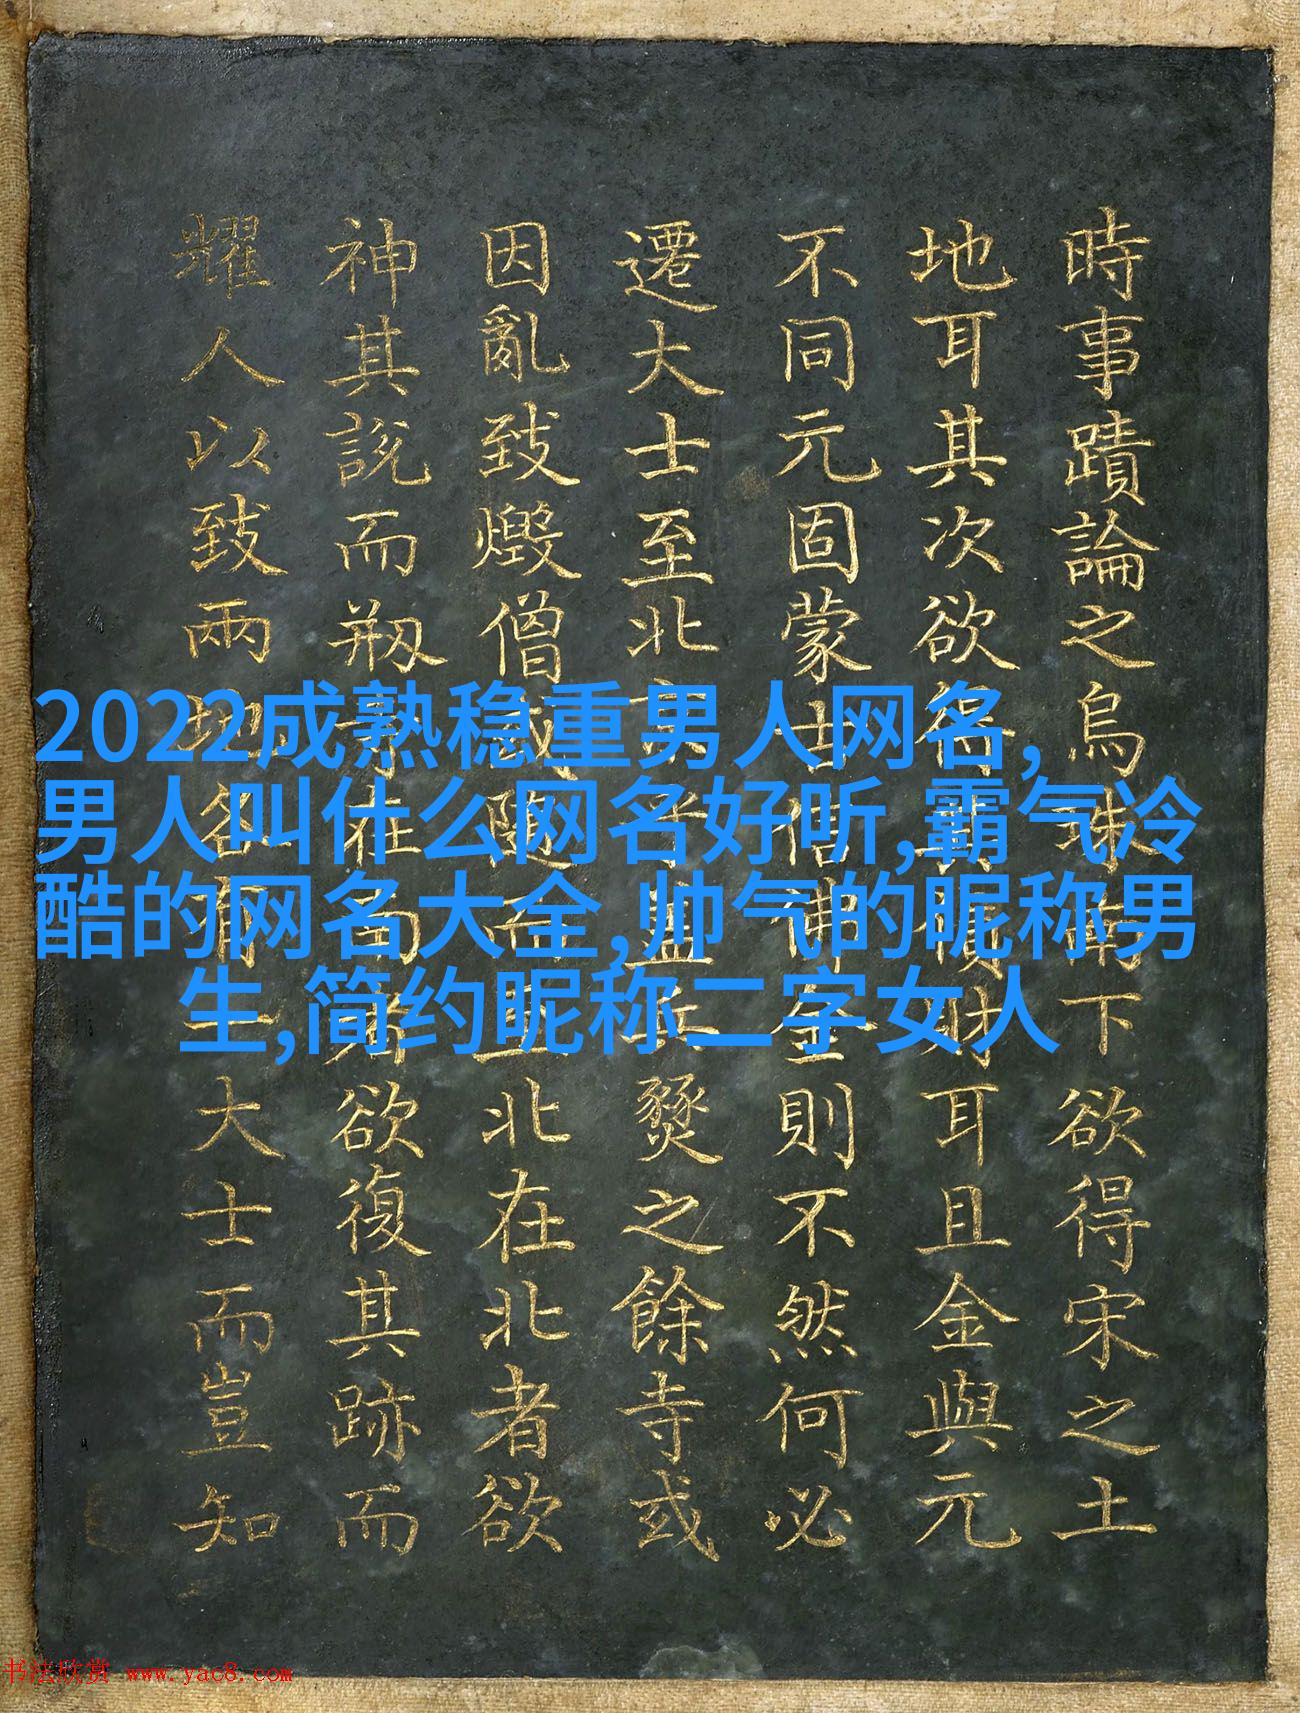 時事蹟論之烏珠南下欲得宋之土
地耳其次欲得貨財耳且金與元
不同元固蒙信佛金則不然何必
遷大士至北京乎盖兵燹之餘寺或
因亂致燬僧或隨而北在北者欲
神其說而剏在南欲復其跡而
耀人以致兩地各有大士而豈知
2022成熟稳重男人网名,
男人叫什么网名好听,霸气冷
酷的网名大全,帅气的昵称男
生,简约昵称二字女人
书法欣赏 www.yac8.com